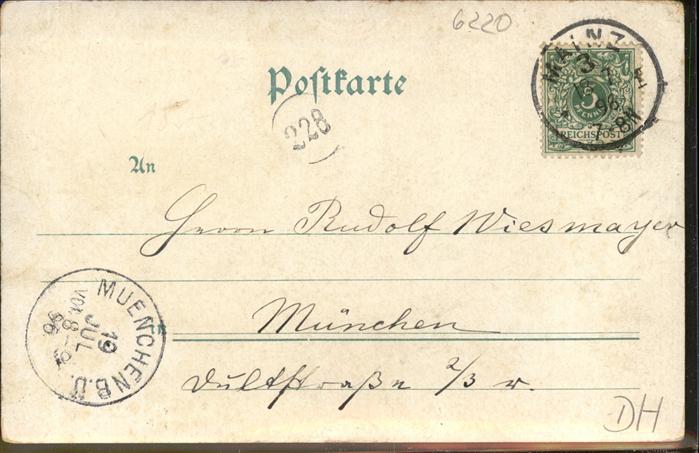 6220
Postkarte
MAINZ
3
96
7-8N
5
REICHSPOST
228
An
Herrn Rudolf Wiesmayer
MUENCHEN B.U.
19
JUL
VOR 8-9
96
in
München
Dultstraße 2/3 r.
DH